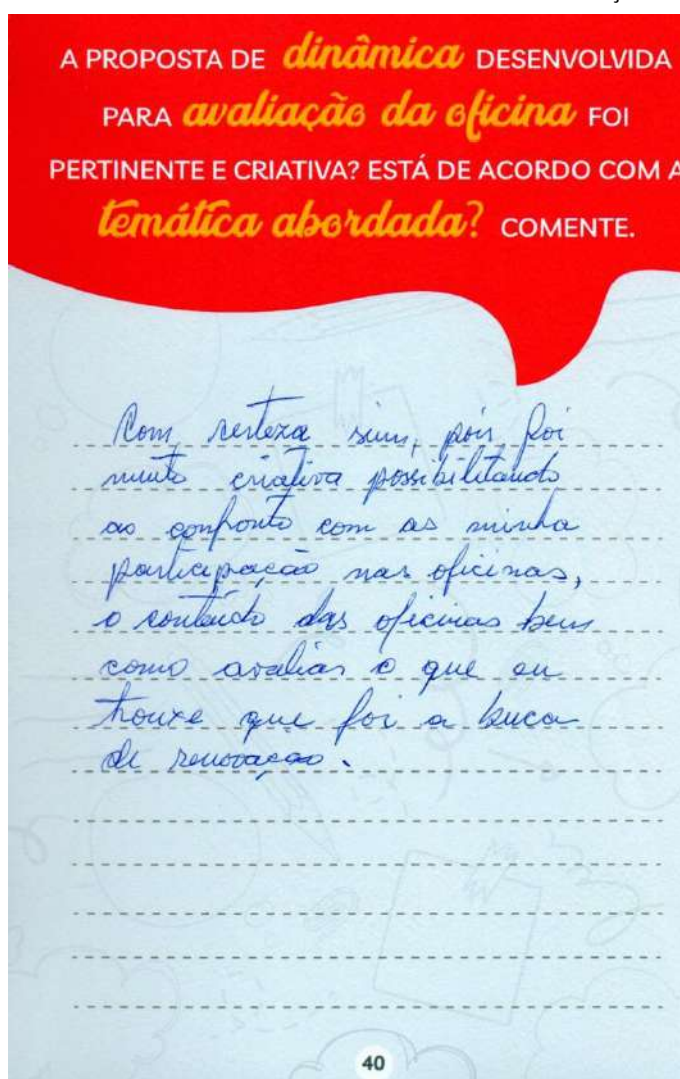 A PROPOSTA DE dinâmica DESENVOLVIDA
PARA avaliação da oficina FOI
PERTINENTE E CRIATIVA? ESTÁ DE ACORDO COM A
temática abordada? COMENTE.
Com certeza sim, pois foi
muito criativa possibilitando
ao confronto com as minha
participação nas oficinas,
o conteúdo das oficinas bem
como avaliar o que eu
trouxe que foi a buca
de renovação.
40